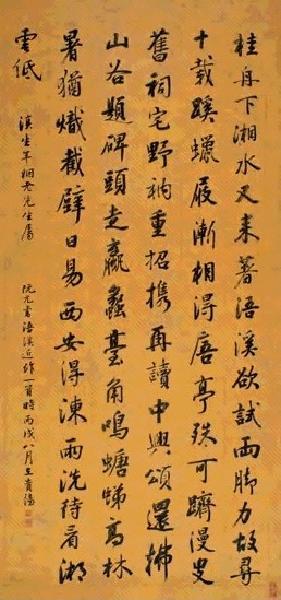 桂舟下湘水又来著浯溪欲試兩脚力故尋
十載蹊蠟屐漸相得唐亭殊可躋漫叟
舊祠宅野衲重招携再讀中興頌還拂
山谷題碑頭走蠃蠡臺角鳴螗高林
暑猶熾截壁日易西安得涷雨洗待看湘
雲低
滇生年姻老先生屬
阮元書浯溪近一首時丙戌八月